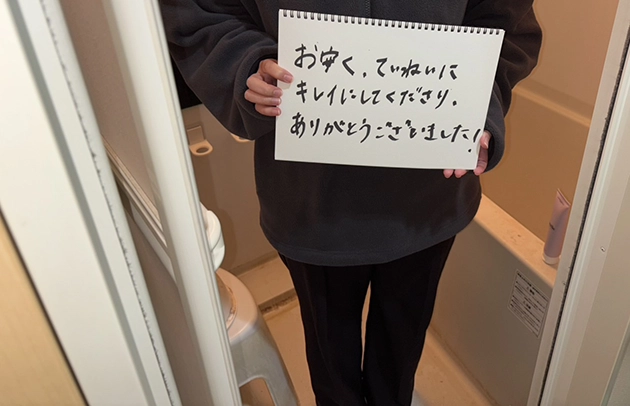 お安く、ていねいに
キレイにしてくださり、
ありがとうございました!